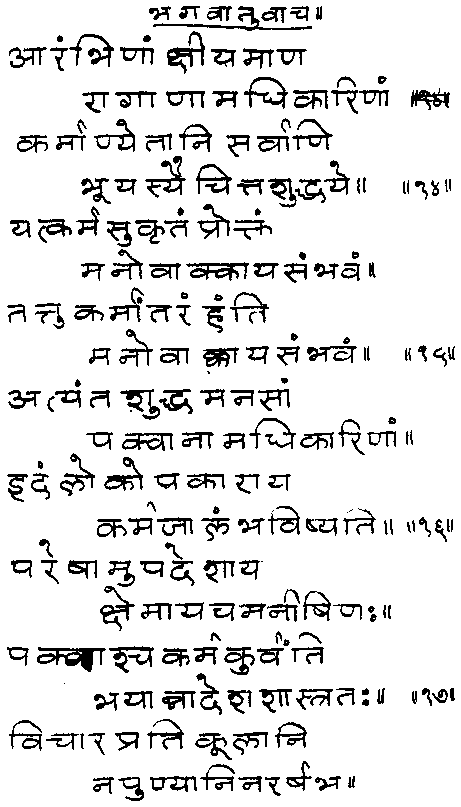 भगवानुवाच॥
आरंभिणां क्षीयमाण
रागाणामधिकारिणां
कर्माण्येतानि सर्वाणि
भूयस्यै चित्तशुद्धये॥ ॥१४॥
यत्कर्मसुकृतं प्रोक्तं
मनोवाक्कायसंभवं॥
तत्तु कर्मांतरं हंति
मनोवाक्कायसंभवं॥ ॥१५॥
अत्यंतशुद्धमनसां
पक्वानामधिकारिणां॥
इदं लोकोपकाराय
कर्मजालं भविष्यति॥ ॥१६॥
परेषामुपदेशाय
क्षेमाय च मनीषिणः॥
पक्वाश्च कर्म कुर्वंति
भयान्नादेशशास्त्रतः॥ ॥१७॥
विचारप्रतिकूलानि
न पुण्यानि नरर्षभ॥